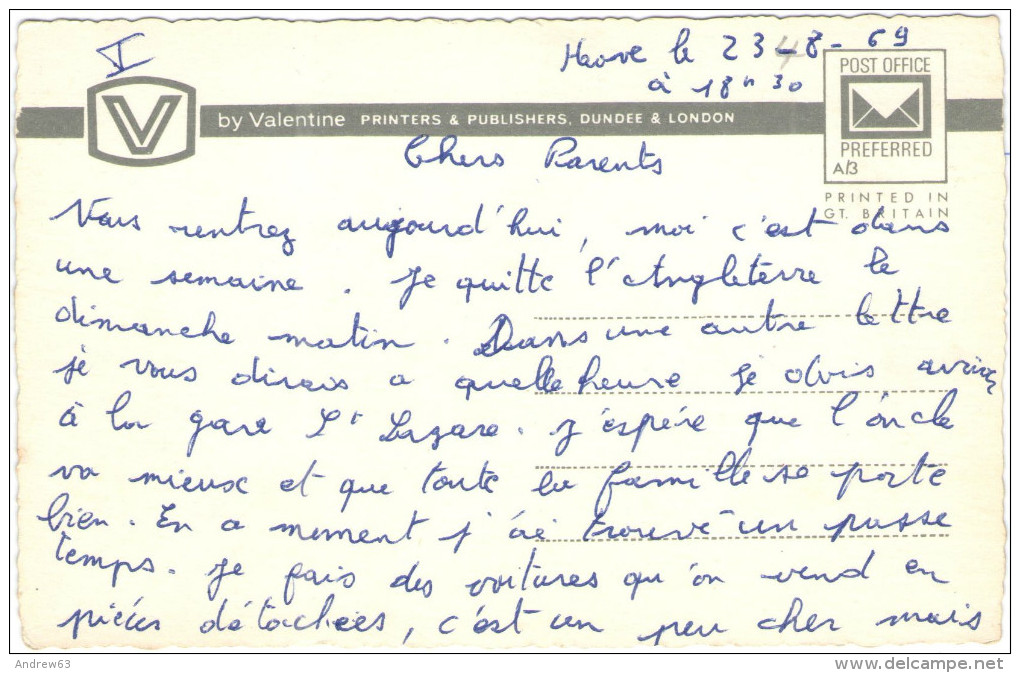 I
Hove le 23-8-69
à 18h30
POST OFFICE
PREFERRED
A/3
PRINTED IN
GT. BRITAIN
V
by Valentine PRINTERS & PUBLISHERS, DUNDEE & LONDON
Chers Parents
Vous rentrez aujourd'hui, moi c'est dans
une semaine. Je quitte l'Angleterre le
dimanche matin. Dans une autre lettre
je vous dirais a quelle heure je dois arriver
à la gare St Lazare. J'espére que l'oncle
va mieux et que toute la famille se porte
bien. En a moment j'ai trouvé un passe
temps. Je fais des voitures qu'on vend en
piéces détachées, c'est un peu cher mais
Andrew63
www.delcampe.net